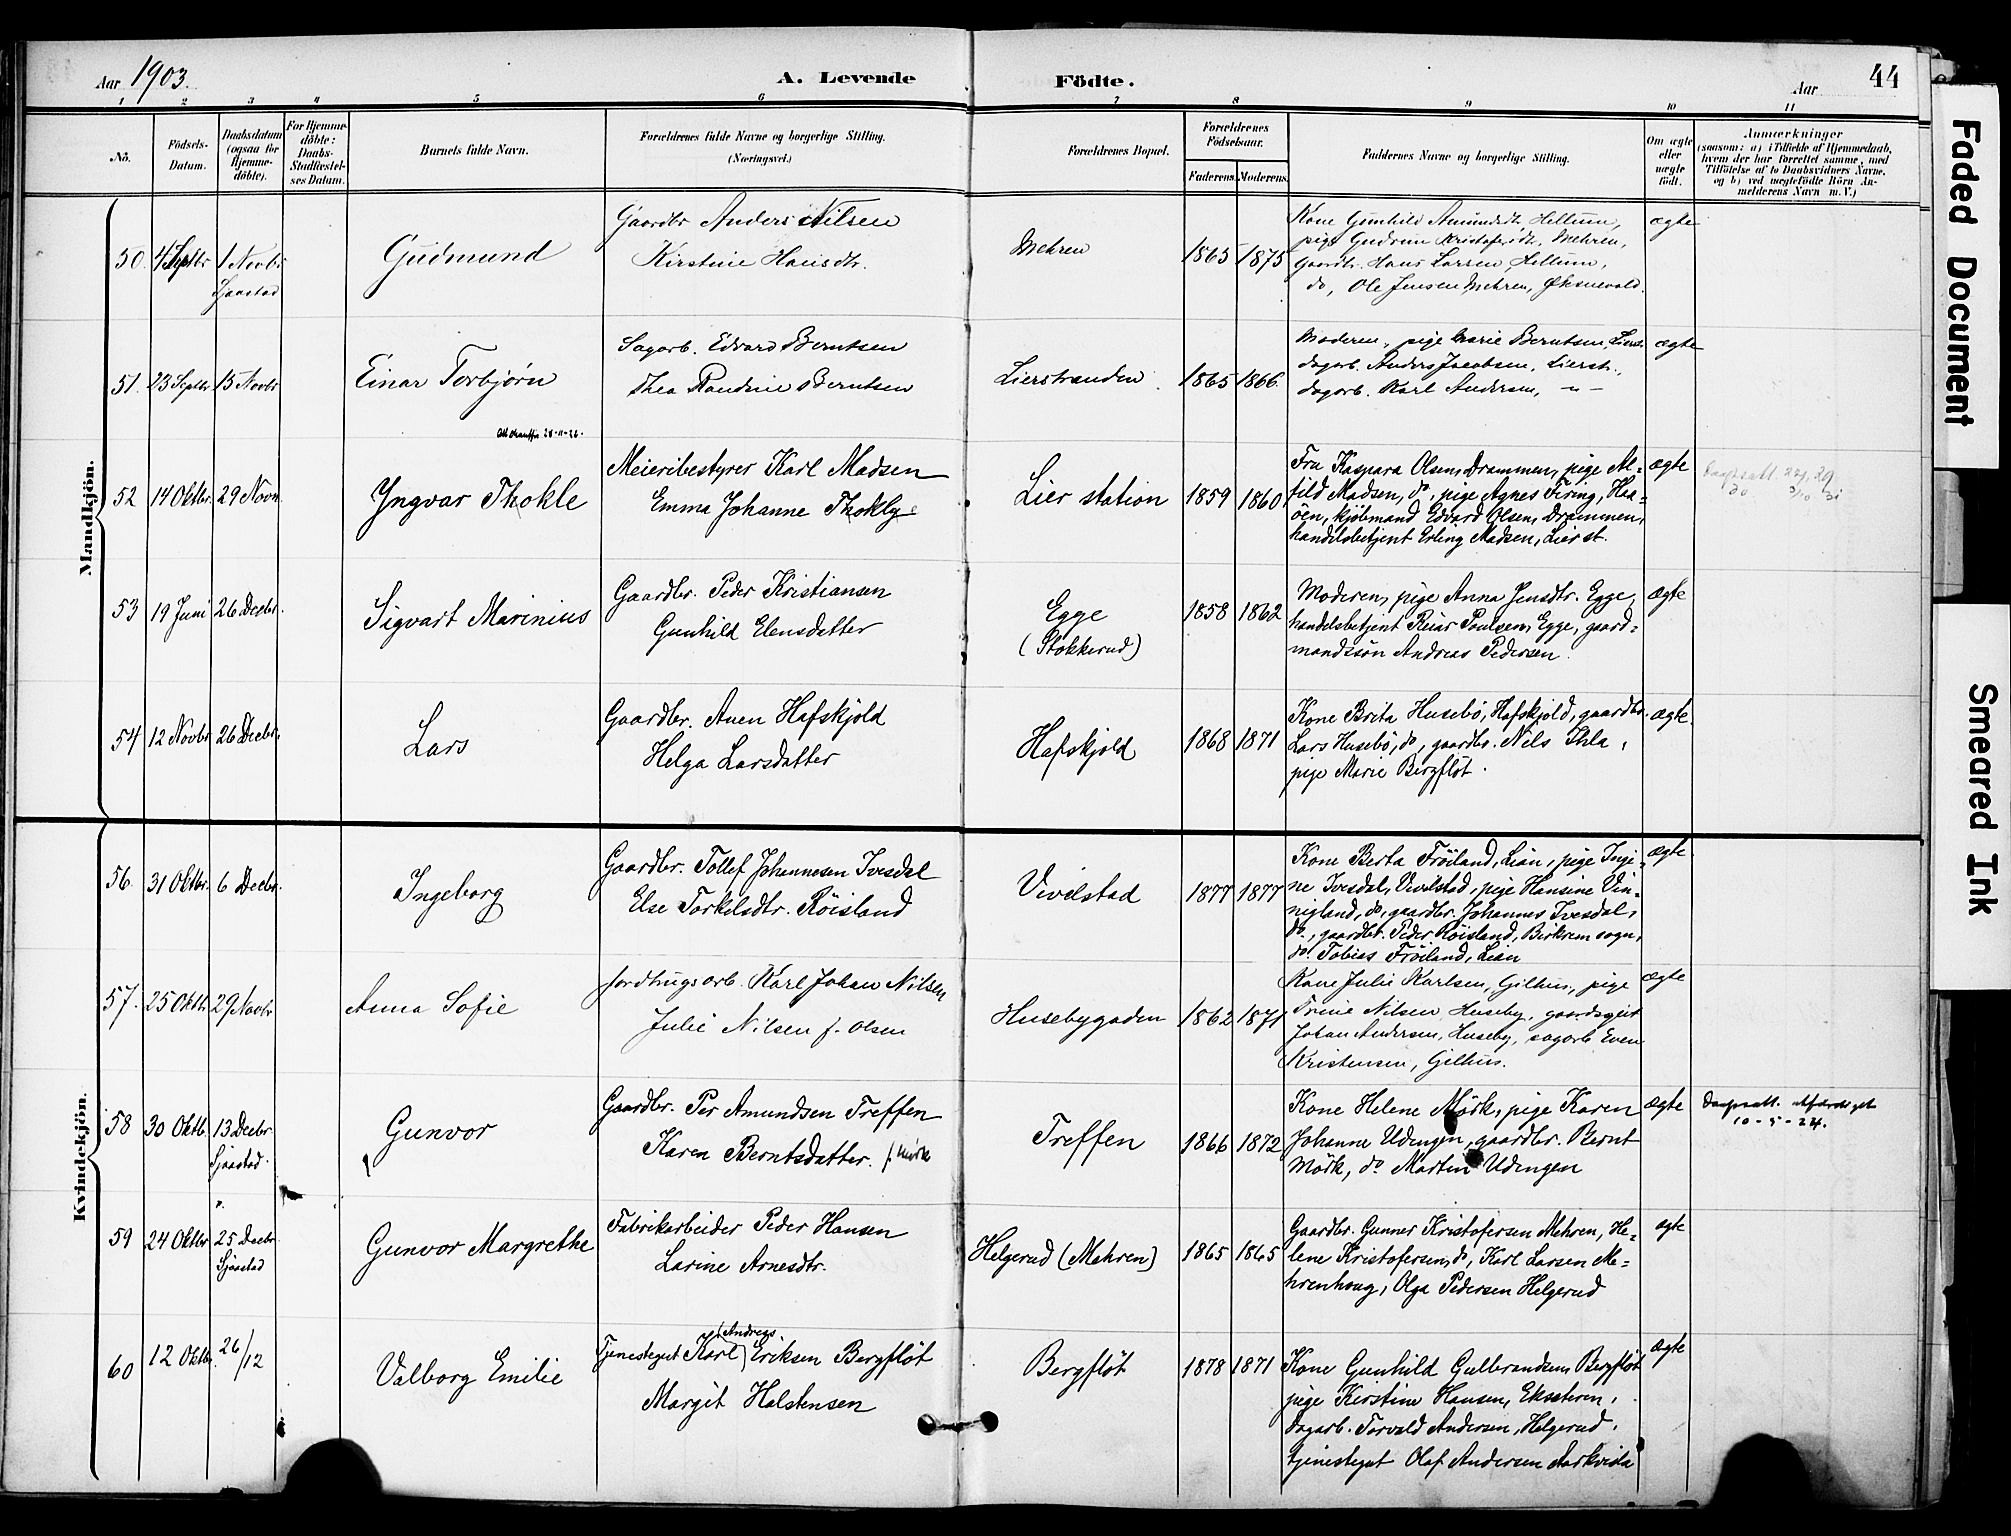 Aar 1903.
A. Levende
Födte.
Aar
44
1 2 3 4 5 6 7 8 9 10 11
No.
Födsels-
Datum.
Daabsdatum
(ogsaa for
Hjemme-
döbte).
For Hjemme-
döbte:
Daabs-
Stadfæstel-
ses Datum.
Barnets fulde Navn.
Forældrenes fulde Navne og borgerlige Stilling.
(Næringsvei.)
Forældrenes Bopæl.
Forældrenes
Födselsaar.
Faderens.
Moderens.
Faddernes Navne og borgerlige Stilling.
Om ægte
eller
uægte
födt.
Anmærkninger
(saasom: a) i Tilfælde af Hjemmedaab,
hvem der har forrettet samme, med
Tilföielse af to Daabsvidners Navne,
og b) ved uægtefödte Börn An-
melderens Navn m. V.)
Mandkjön.
50. 4 Septbr 1 Novbr
Sjaastad
Gudmund
Gaardbr Anders Nilsen
Kirstine Hansdtr.
Mehren
1865 1875
Kone Gunhild Amundsdtr, Hellum,
pige Gudrun Kristofersdtr, Mehren,
Gaardbr. Hans Larsen, Hellum,
do, Ole Jensen Mehren, Øksnevald.
ægte
51. 23 Septbr 15 Novbr
Einar Torbjørn
Sagarb. Edvard Berntsen
Thea Randine Berntsen
Lierstranden
1865 1866
Moderen, pige Marie Berntsen, Lierst.
dagarb. Anders Jacobsen, Lierstr.,
dagarb. Karl Andersen, – " –
ægte
52 14 Oktbr 29 Novn
Yngvar Thokle
Meieribestyrer Karl Madsen
Emma Johanne Thokly
Lier station
1859 1860
Fru Kaspara Olsen, Drammen, pige Al-
fild Madsen, do, pige Agnes Firing, Haa-
öen, kjöbmand Edvard Olsen, Drammen,
handelsbetjent Erling Madsen, Lier st.
ægte
53 19 Juni 26 Decbr.
Sigvart Marinius
Gaardbr. Peder Kristiansen
Gunhild Elensdatter
Egge
(Stokkerud)
1858 1862
Moderen, pige Anna Jensdtr. Egge,
handelsbetjent Reiar Poulsen, Egge, gaard-
mandssön Andreas Pedersen.
ægte
54 12 Novbr 26 Decbr.
Lars
Gaardbr. Auen Hafskjold
Helga Larsdatter
Hafskjold
1868 1871
Kone Brita Husebö, Hafskjold, gaardbr.
Lars Husebö, do, gaardbr. Nils Ihla,
pige Marie Bergflöt.
ægte.
Kvindekjön.
56 31 Oktbr. 6 Decbr.
Ingeborg
Gaardbr. Tollef Johannesen Ivesdal
Else Torkilsdtr. Röisland
Vivelstad
1877 1877
Kone Berta Fröiland, Lian, pige Ingi-
ne Ivesdal, Vivilstad, pige Hansine Vin-
nigland, do, gaardbr. Johannes Ivesdal,
do., gaardbr. Peder Röisland, Birkrem sogn,
do Tobias Fröiland, Lian
ægte
57. 25 Oktbr 29 Novbr
Anna Sofie
Jordbrugsarb. Karl Johan Nilsen
Julie Nilsen f. Olsen
Husebygaden
1862 1871
Kone Julie Karlsen, Gilhus, pige
Trine Nilsen, Huseby, gaardsgut
Johan Andersen, Huseby, sagarb Even
Kristensen, Gilhus.
ægte
58 30 Oktb. 13 Decbr
Sjaastad.
Gunvor
Gaardbr. Per Amundsen Treffen
Karen Berntsdatter. f. Mörk
Treffen
1866 1872
Kone Helene Mörk, pige Karen
Johanne Udengen, gaardbr. Bernt
Mörk, do Martin Udengen
ægte
Daapsatt. utfærdiget
10-5-24.
59 24 Oktbr 25 Decbr
Sjaastad
Gunvor Margrethe
Fabrikarbeider Peder Hansen
Larine Arnesdtr.
Helgerud (Mehren)
1865 1865
Gaardbr. Gunner Kristofersen Mehren, He-
lene Kristofersen, do, Karl Larsen Me-
hrenhaug, Olga Pedersen Helgerud
ægte
60 12 Oktbr. 26/12
Valborg Emilie
Andreas
Tjenestegut Karl Eriksen Bergflöt
Margit Halstensen
Bergflöt
1878 1871
Kone Gunhild Gulbrandsen, Bergflöt
pige Kirstine Hansen, Eksæteren,
Dagarb. Torvald Andersen, Helgerud,
tjenestegut Olaf Andersen Aarkvisla
ægte
Faded Document
Smeared Ink